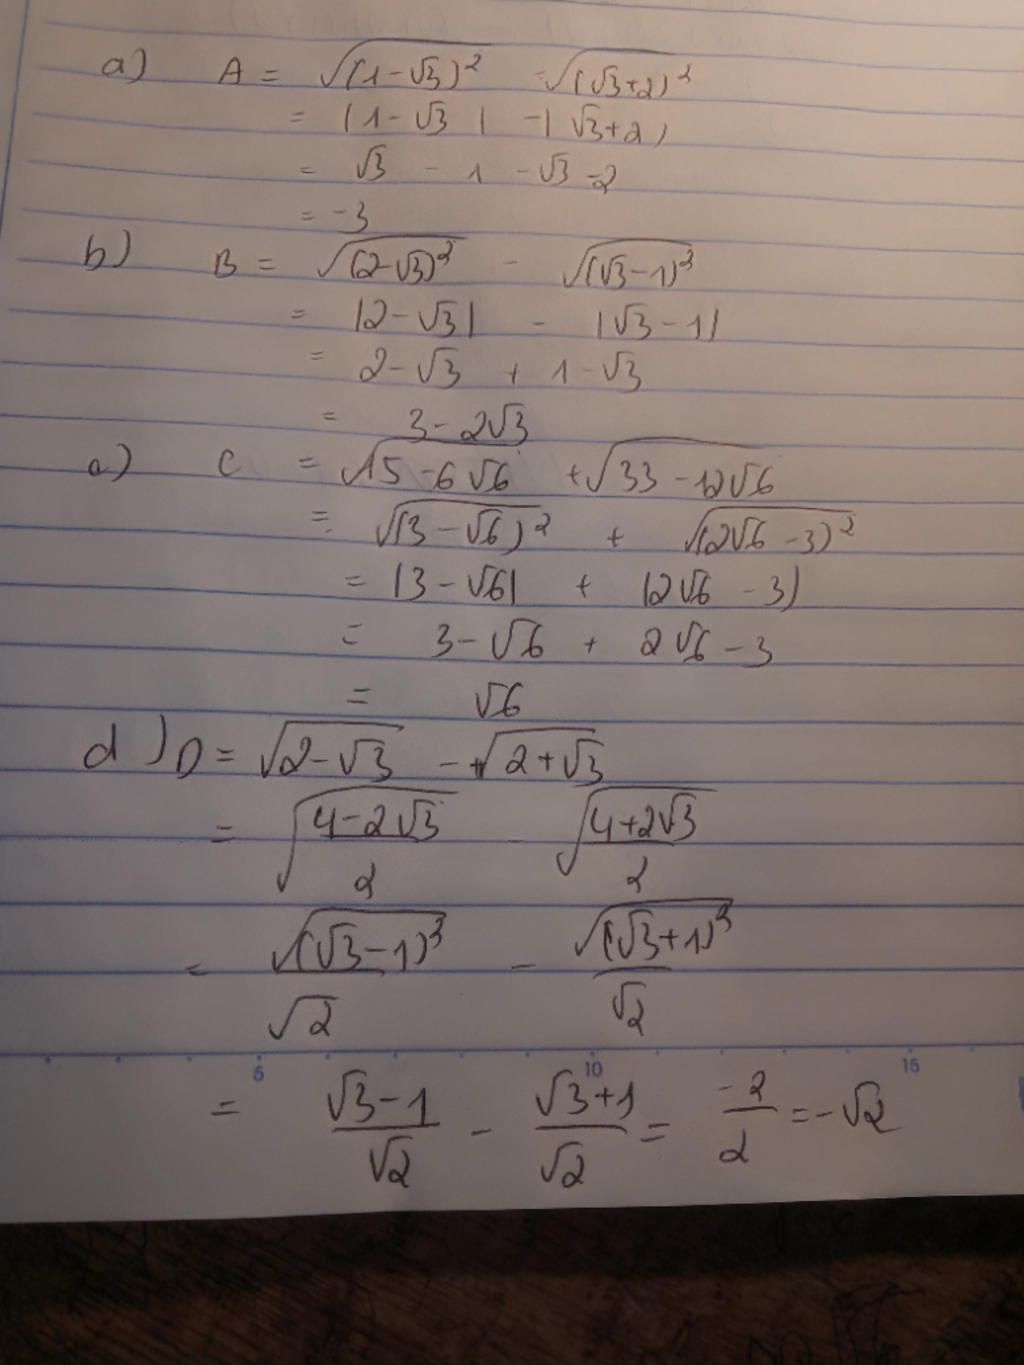 a) A = √(1-√3)² - √(√3+2)²
= |1-√3| - |√3+2|
= √3 - 1 - √3 - 2
= -3
b) B = √(2-√3)² - √(√3-1)²
= |2-√3| - |√3-1|
= 2-√3 + 1-√3
= 3-2√3
c) C = √15-6√6 + √33-12√6
= √(3-√6)² + √(2√6-3)²
= |3-√6| + |2√6-3|
= 3-√6 + 2√6-3
= √6
d) D = √2-√3 - √2+√3
= √(4-2√3)/2 - √(4+2√3)/2
= √(√3-1)²/√2 - √(√3+1)²/√2
5 10 15
= (√3-1)/√2 - (√3+1)/√2 = -2/2 = -√2